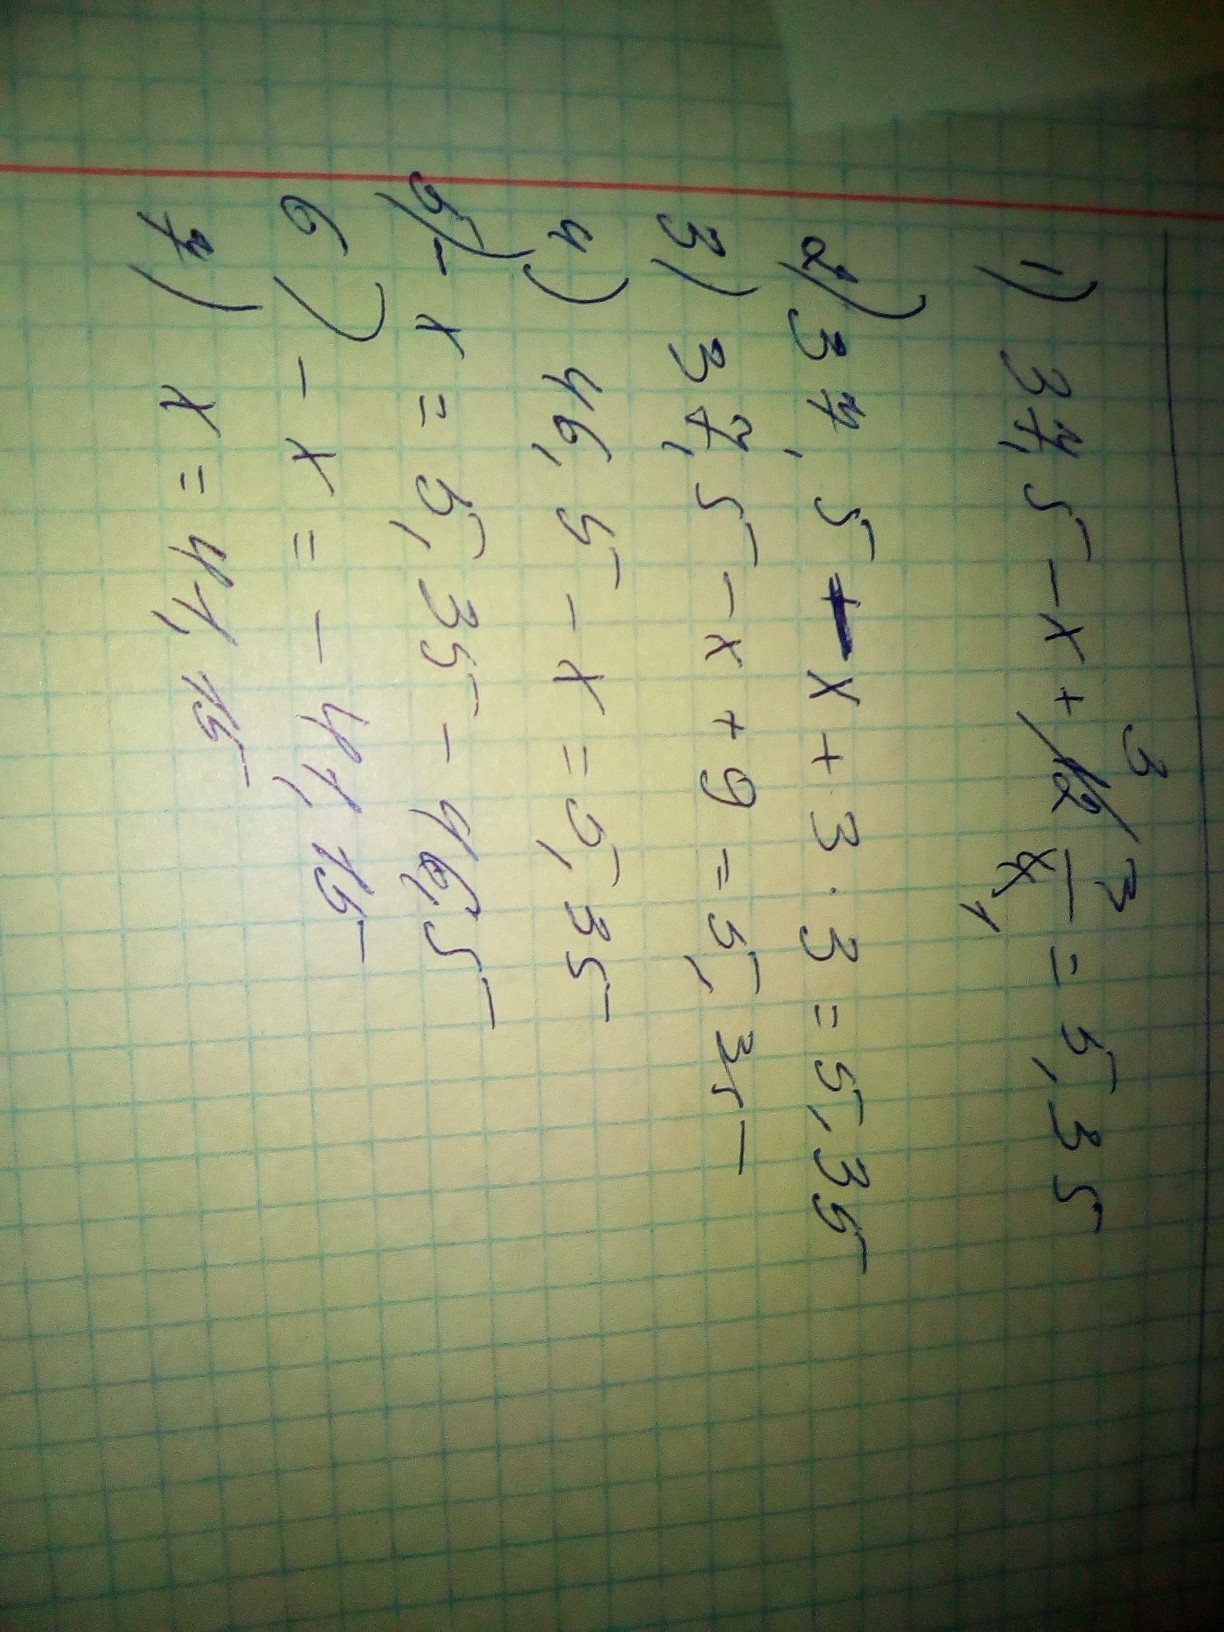 1) 37,5 - x + 12 3/4 = 5,35
3 1
2) 37,5 - x + 3 · 3 = 5,35
3) 37,5 - x + 9 = 5,35
4) 46,5 - x = 5,35
5) - x = 5,35 - 46,5
6) - x = - 41,15
7) x = 41,15